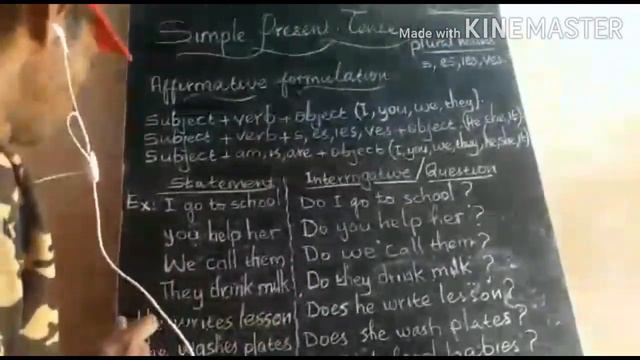 Made with KINEMASTER
Simple Present Tense
plural nouns
s, es, ies, ves.
Affirmative formulation
Subject + verb + object (I, you, we, they).
Subject + verb + s, es, ies, ves + object. (He, she, it)
Subject + am, is, are + object (I, you, we, they, he, she, it)
Statement Interrogative/Question
Ex: I go to school Do I go to school?
you help her Do you help her?
We call them Do we call them?
They drink milk Do they drink milk?
He writes lesson Does he write lesson?
washes plates Does she wash plates?
babies?